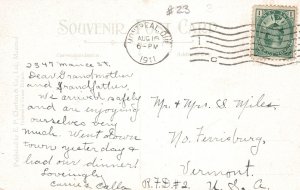 #23
SOUVENIR POST CARD
MONTREAL, QUE.
AUG 16
6-PM
1911
C
1
2347 Mance St
Dear Grandmother
and Grandfather,
We arrived safely
and are enjoying
ourselves very
much. Went down
town yesterday &
had our dinner.
Lovingly
Mr. & Mrs. S. E. Miles,
No. Ferrisburg,
Vermont.
R.F.D. #2. U.S.A.